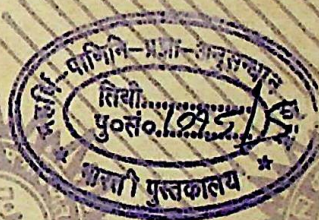 महर्षि–पाणिनि–प्रज्ञा–अनुसन्धान
तिथी..........
पु०सं०.
* भारती पुस्तकालय *